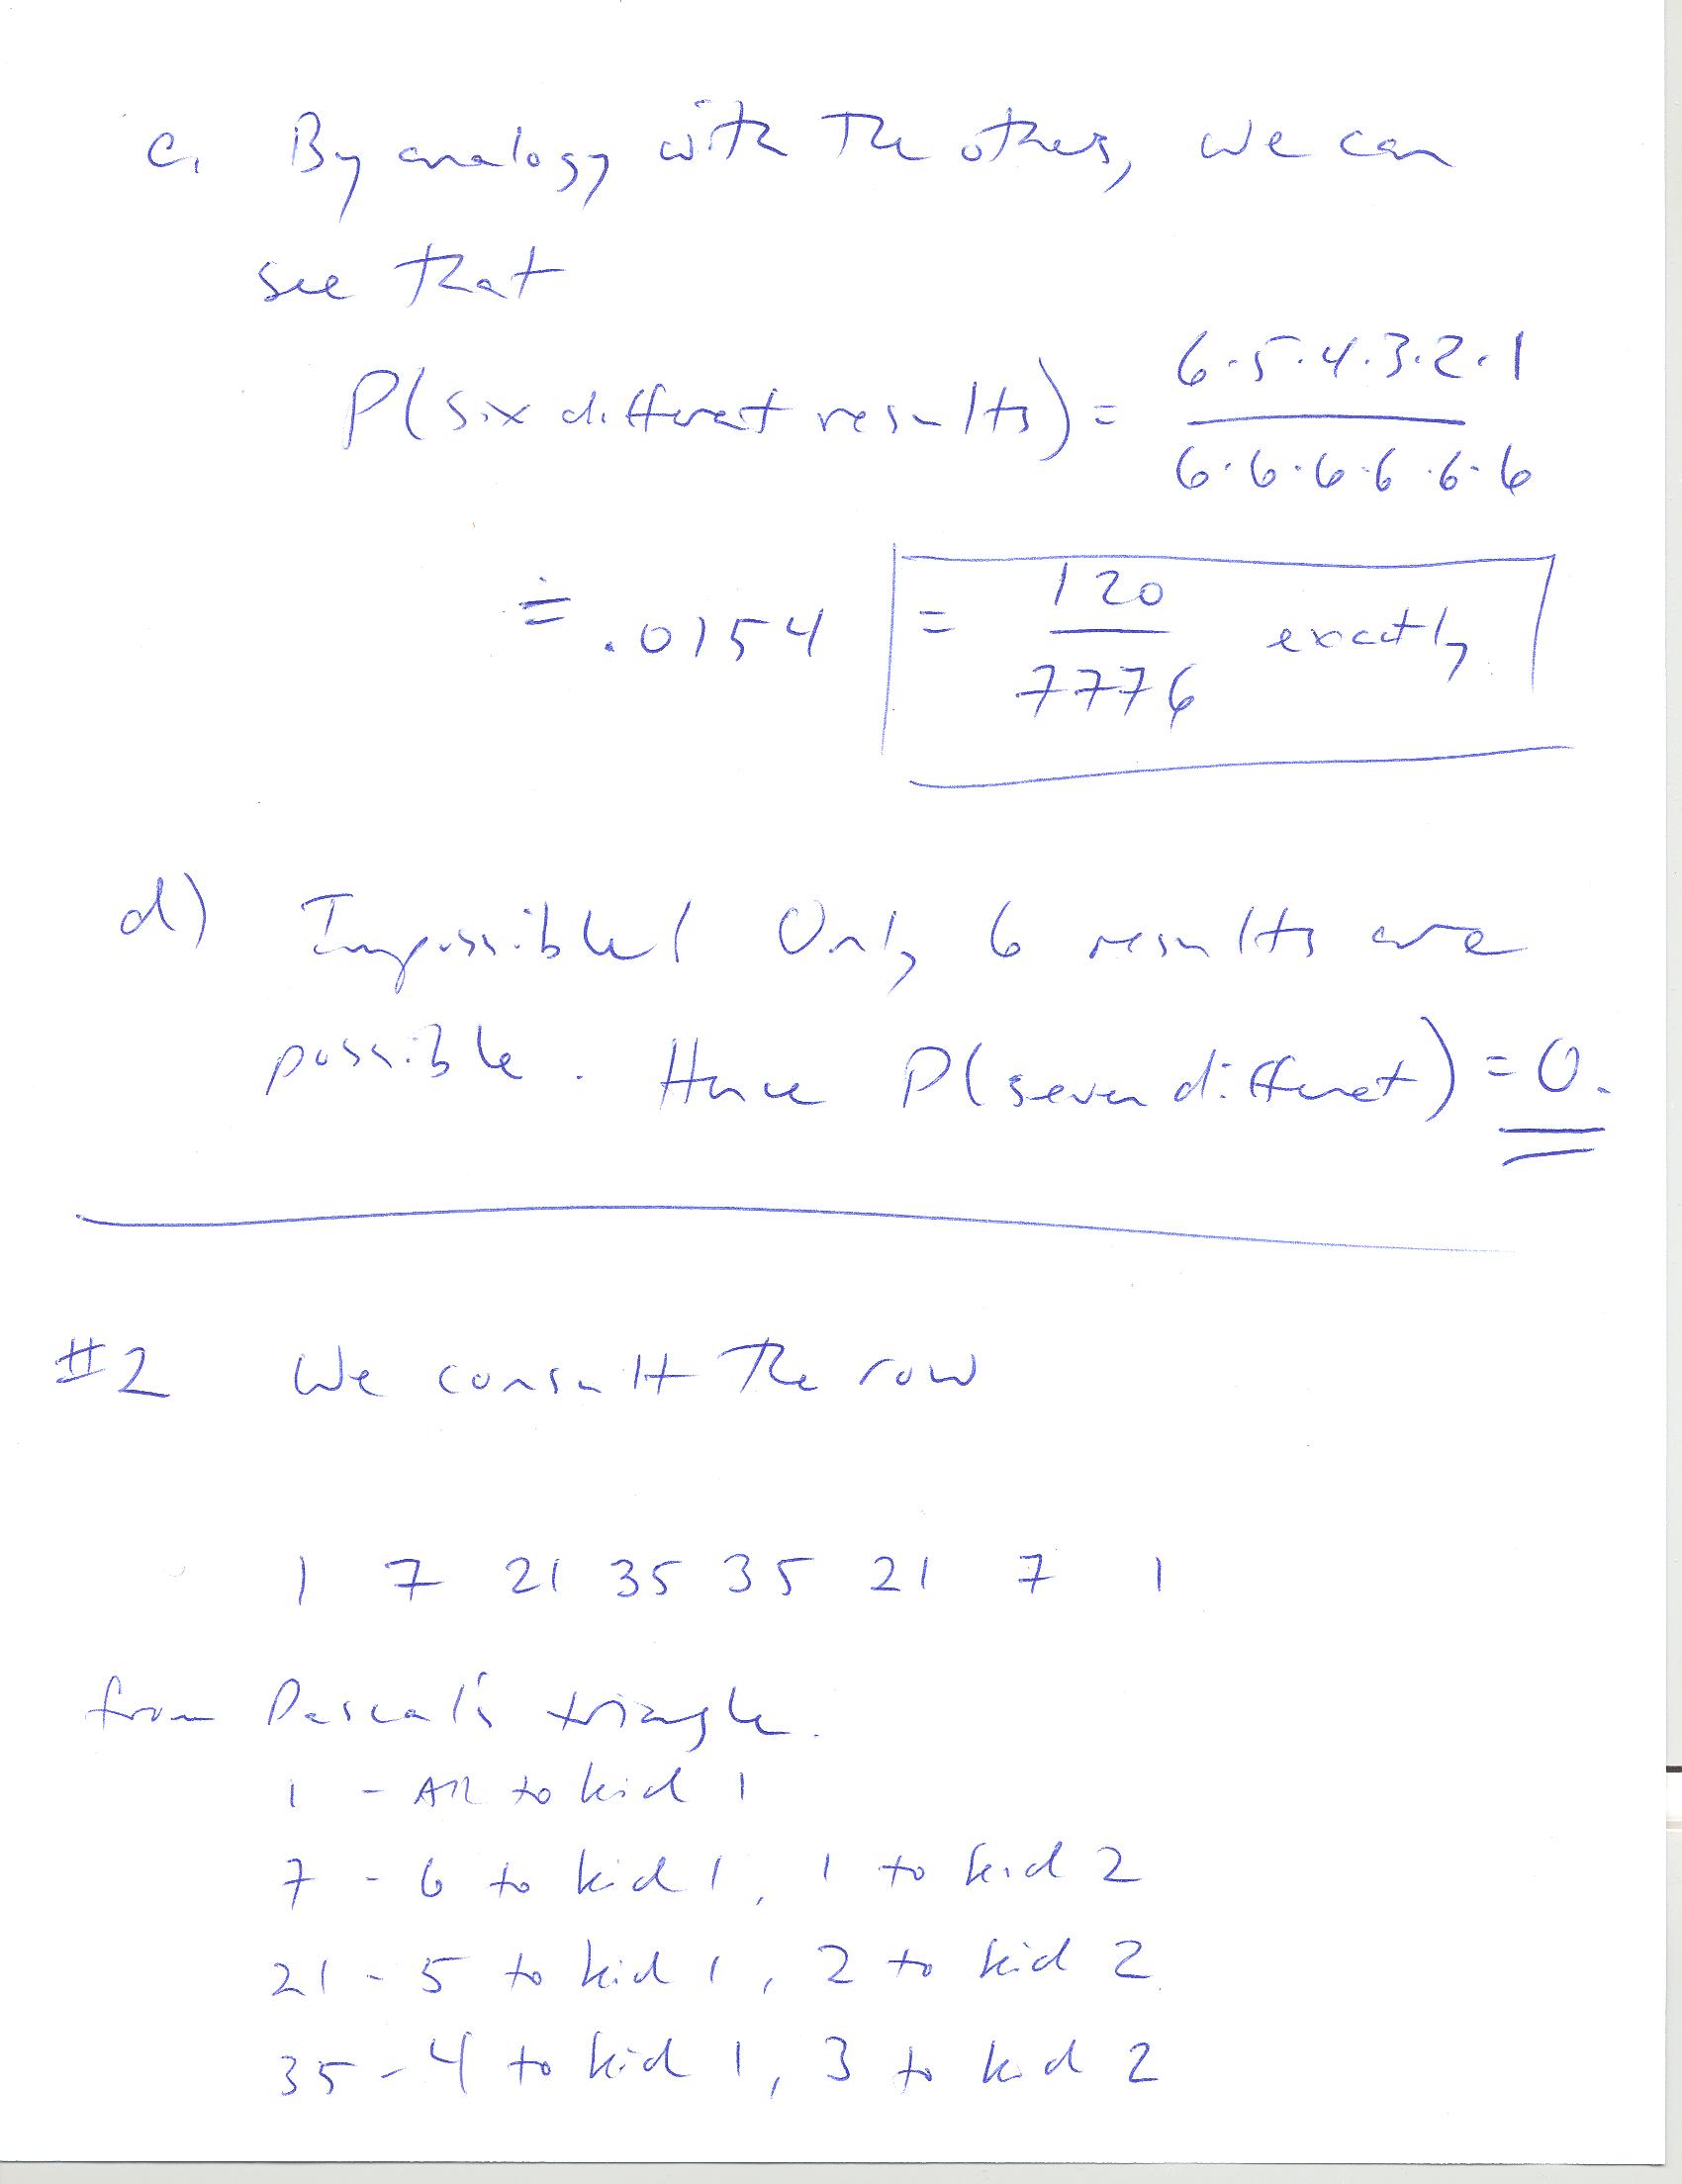 c. By analogy with the others, we can
see that
P(six different results) = 6·5·4·3·2·1 / 6·6·6·6·6·6
≐ .0154 = 120 / 7776 exactly
d) Impossible! Only 6 results are
possible. Hence P(seven different) = 0.
#2 We consult the row
1 7 21 35 35 21 7 1
from Pascal's triangle.
1 - All to kid 1
7 - 6 to kid 1, 1 to kid 2
21 - 5 to kid 1, 2 to kid 2
35 - 4 to kid 1, 3 to kid 2